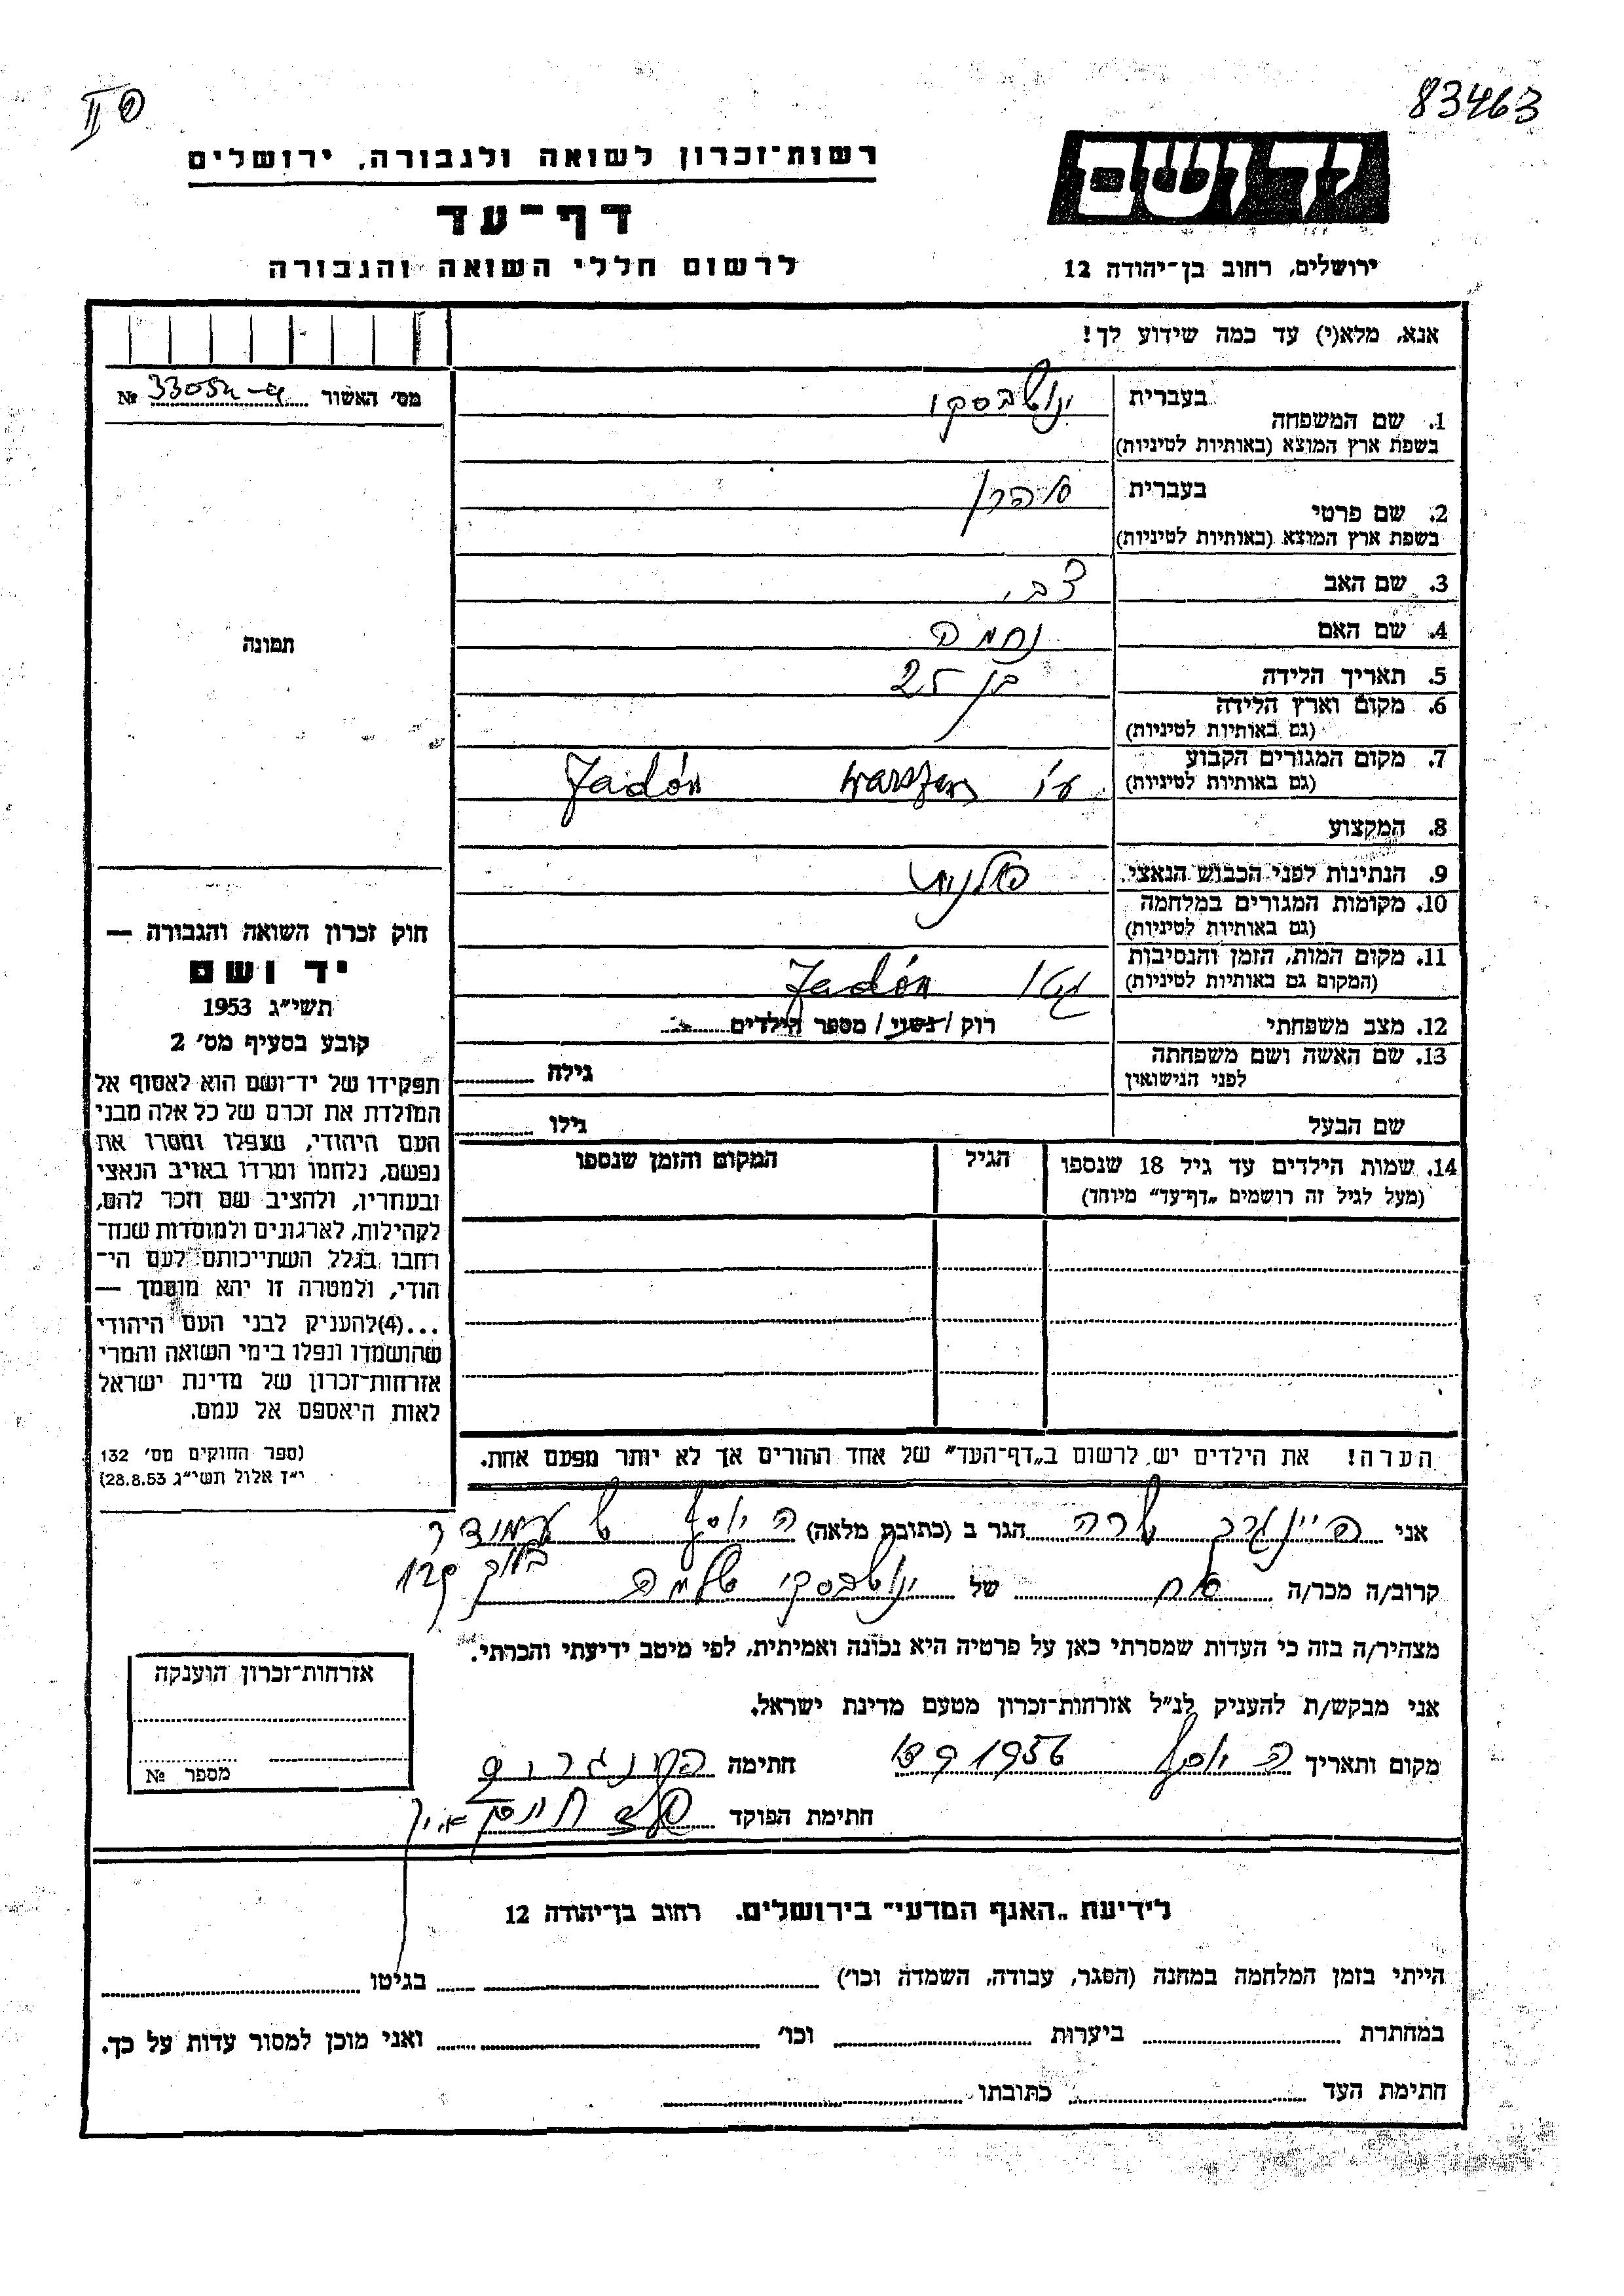 83463
רשות־זכרון לשואה ולגבורה, ירושלים
יד ושם
דף־עד
לרשום חללי השואה והגבורה
ירושלים, רחוב בן־יהודה 12
אנא, מלא(י) עד כמה שידוע לך!
מס׳ האשור №
1. שם המשפחה
בעברית
בשפת ארץ המוצא (באותיות לטיניות)
2. שם פרטי
בעברית אהרן
בשפת ארץ המוצא (באותיות לטיניות)
3. שם האב צבי
4. שם האם נחמה
5. תאריך הלידה בן 25
6. מקום וארץ הלידה
(גם באותיות לטיניות)
7. מקום המגורים הקבוע Jadón
(גם באותיות לטיניות)
8. המקצוע
9. הנתינות לפני הכבוש הנאצי פולנית
10. מקומות המגורים במלחמה
(גם באותיות לטיניות)
11. מקום המות, הזמן והנסיבות גטו Jadón
(המקום גם באותיות לטיניות)
12. מצב משפחתי רוק / נשוי / מספר הילדים
13. שם האשה ושם משפחתה
לפני הנישואין
גילה
שם הבעל גילו
14. שמות הילדים עד גיל 18 שנספו
(מעל לגיל זה רושמים „דף־עד״ מיוחד)
הגיל
המקום והזמן שנספו
הערה! את הילדים יש לרשום ב„דף־העד״ של אחד ההורים אך לא יותר מפעם אחת.
תמונה
חוק זכרון השואה והגבורה —
יד ושם
תשי״ג 1953
קובע בסעיף מס׳ 2
תפקידו של יד־ושם הוא לאסוף אל
המולדת את זכרם של כל אלה מבני
העם היהודי, שנפלו ומסרו את
נפשם, נלחמו ומרדו באויב הנאצי
ובעוזריו, ולהציב שם וזכר להם,
לקהילות, לארגונים ולמוסדות שנח־
רבו בגלל השתייכותם לעם הי־
הודי, ולמטרה זו יהא מוסמך —
...(4)להעניק לבני העם היהודי
שהושמדו ונפלו בימי השואה והמרי
אזרחות־זכרון של מדינת ישראל
לאות היאספם אל עמם.
(ספר החוקים מס׳ 132
י״ד אלול תשי״ג 28.8.53)
אני שרה הגר ב (כתובת מלאה)
קרוב/ה מכר/ה של
מצהיר/ה בזה כי העדות שמסרתי כאן על פרטיה היא נכונה ואמיתית, לפי מיטב ידיעתי והכרתי.
אני מבקש/ת להעניק לנ״ל אזרחות־זכרון מטעם מדינת ישראל.
מקום ותאריך 1956 חתימה
חתימת הפוקד
אזרחות־זכרון הוענקה
מספר №
לידיעת „האגף המדעי״ בירושלים, רחוב בן־יהודה 12
הייתי בזמן המלחמה במחנה (הסגר, עבודה, השמדה וכו׳) בגיטו
במחתרת ביערות וכו׳ ואני מוכן למסור עדות על כך.
חתימת העד כתובתו